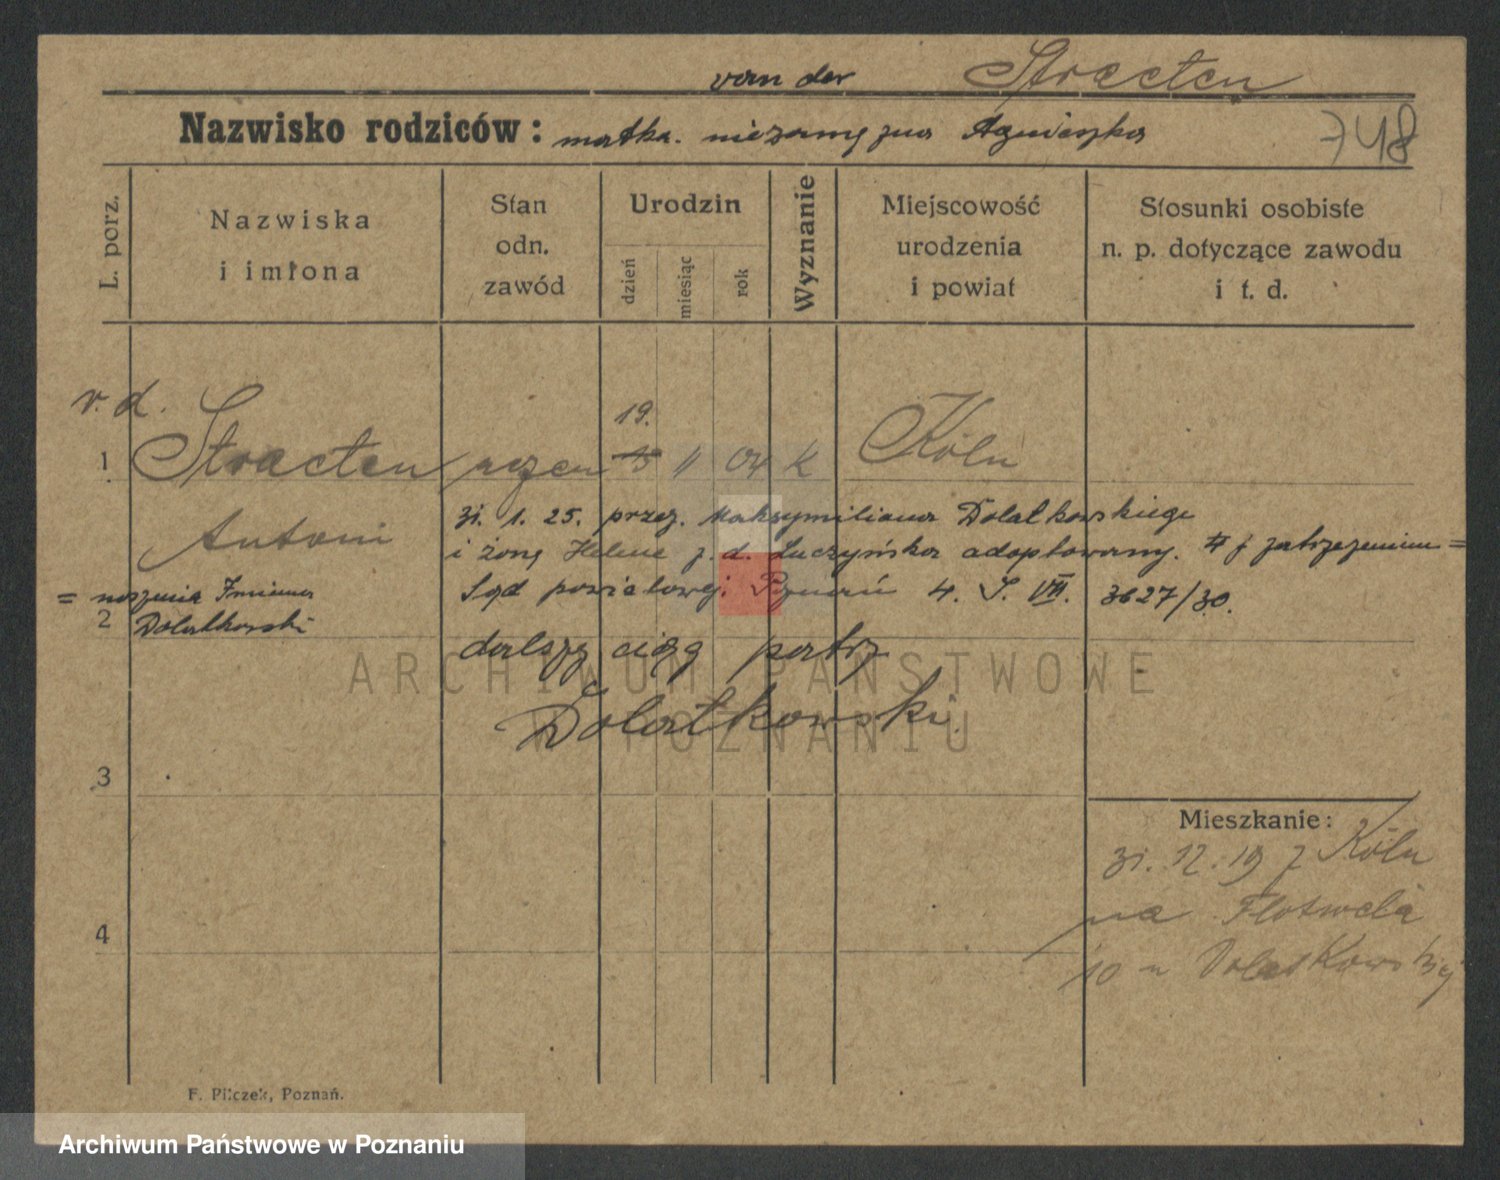 van der Straeten
Nazwisko rodziców: matka. niezamężna Agnieszka
748
L. porz.
Nazwiska
i imiona
Stan
odn.
zawód
Urodzin
dzień
miesiąc
rok
Wyznanie
Miejscowość
urodzenia
i powiat
Stosunki osobiste
n. p. dotyczące zawodu
i t. d.
v. d.
19.
1 Straeten uczeń 15 11 04 k Köln
Antoni
31. 1. 25. przez Maksymiliana Dolatkowskiego
i żonę Helenę z. d. Łuczyńska adoptowany. # z zatrzeżeniem =
= noszenia Imienia
Dolatkowski
Sąd powiatowej Poznań 4. S. VII. 3627/30.
2
dalszy ciąg patrz
Dolatkowski.
3
Mieszkanie:
31. 12. 19 z Köln
na Flotwela
10 u Dolatkowskiej
4
F. Pilczek, Poznań.
ARCHIWUM PAŃSTWOWE
W POZNANIU
Archiwum Państwowe w Poznaniu